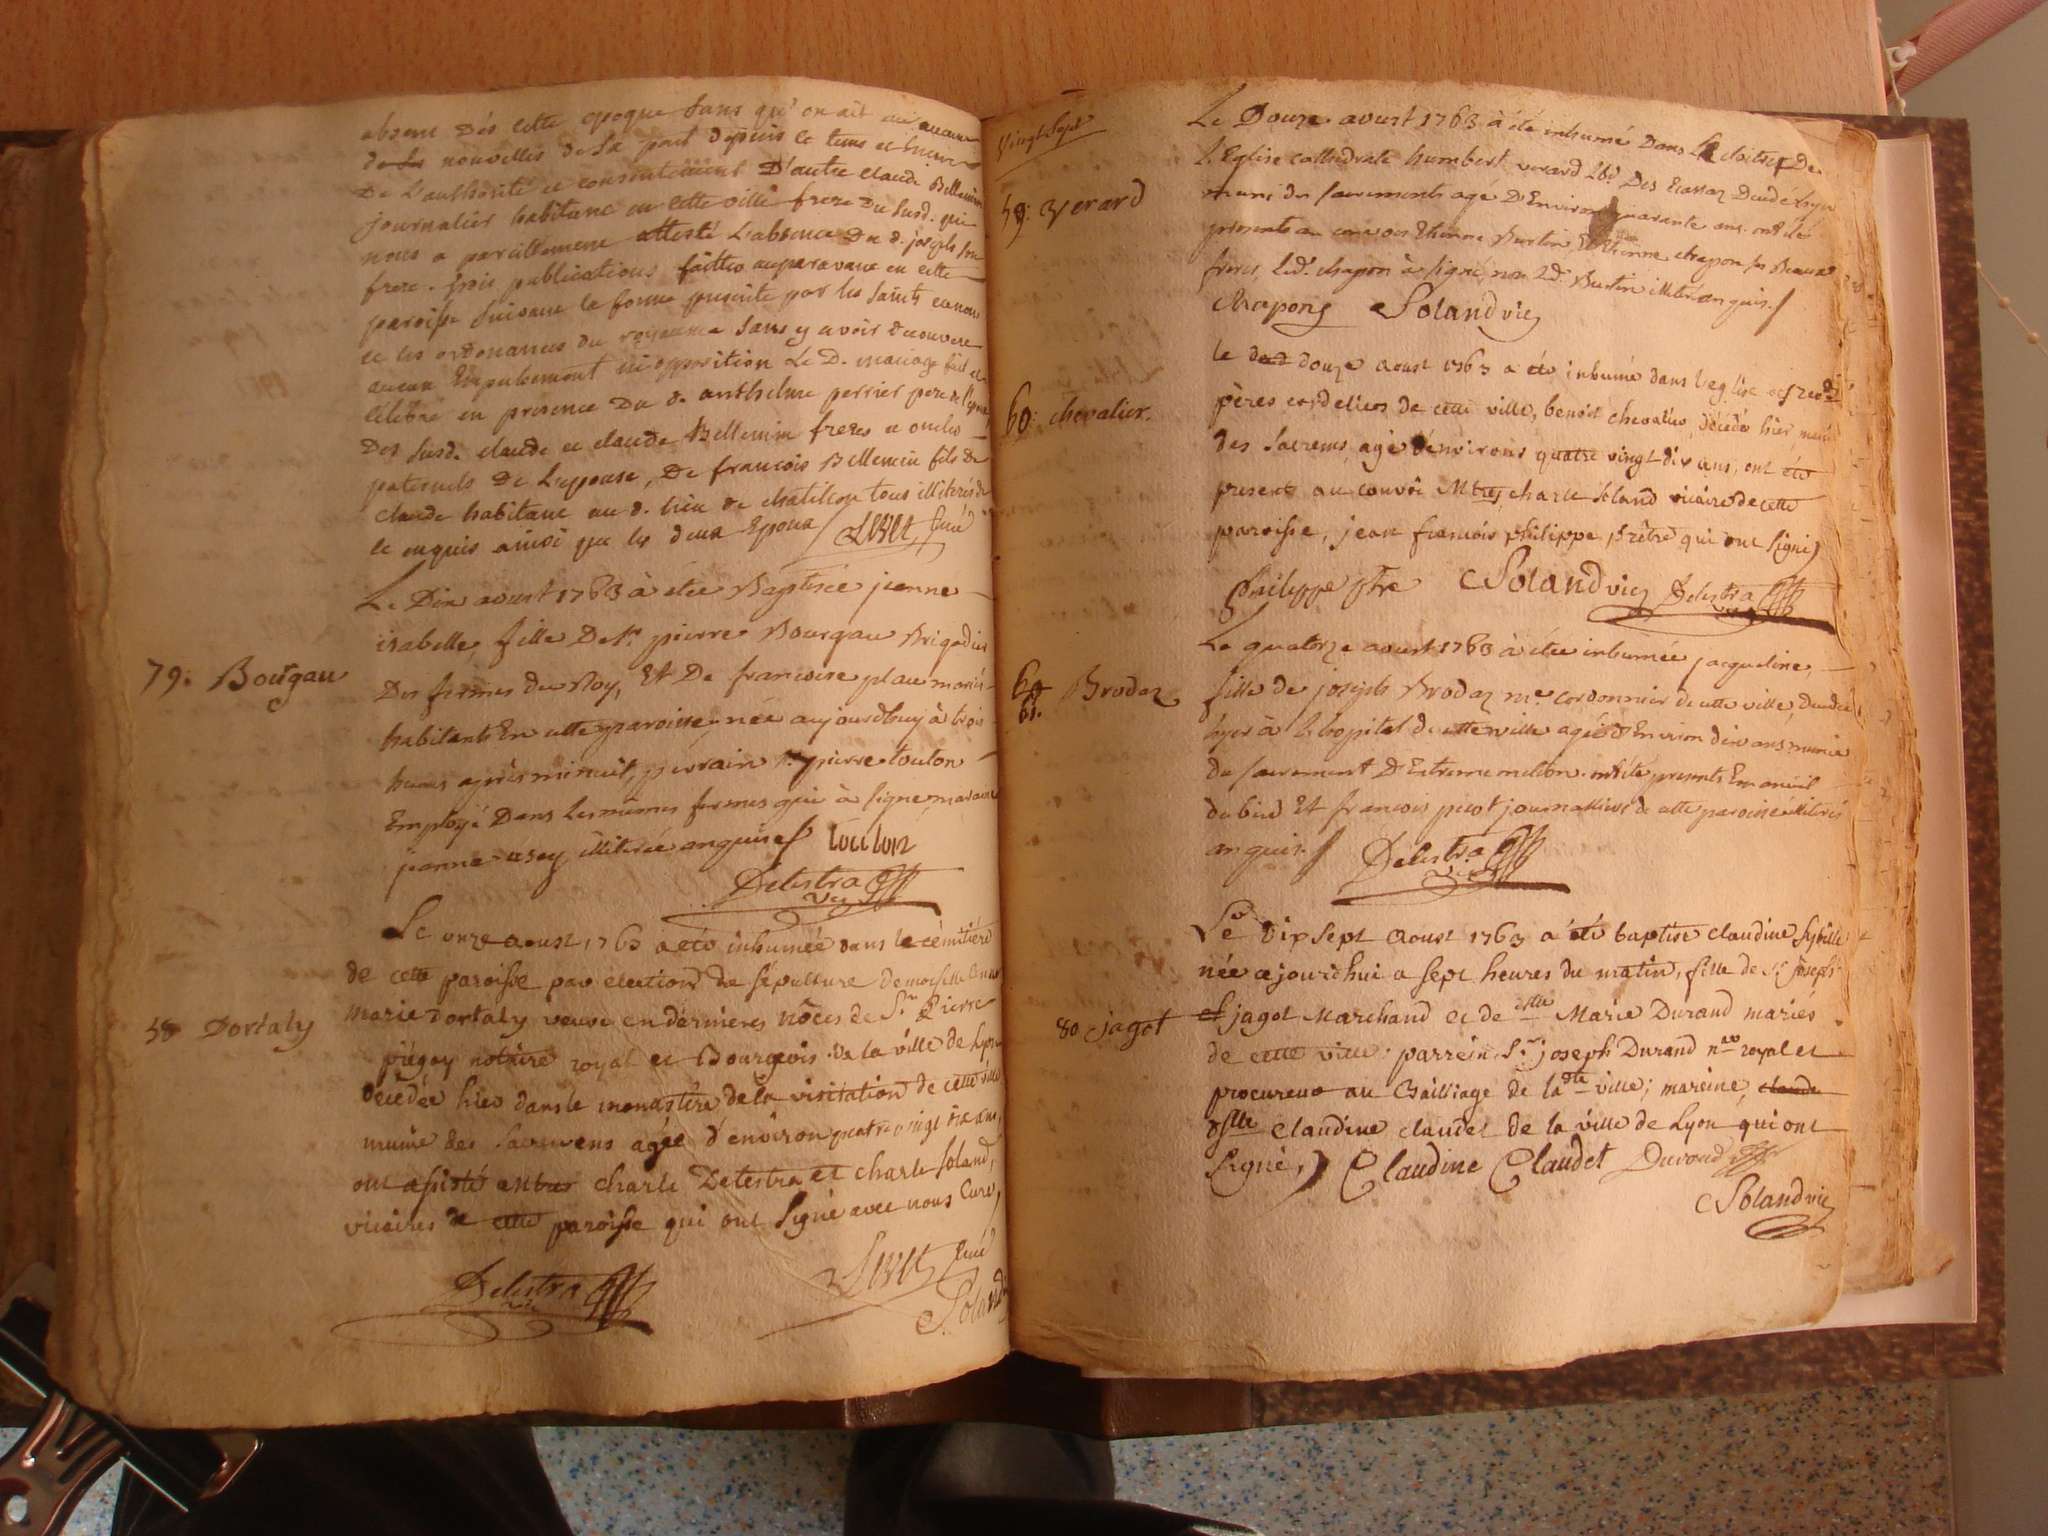 absent dés cette epoque sans qu'on ait eu aucune
de ses nouvelles de sa part depuis ce tems et
de l'authorité et consentement d'autre claude Bellemin
journalier habitant en cette ville frere du susd. qui
nous a pareillement attesté l'absence du d. joseph son
frere. trois publications faittes auparavant en cette
paroisse suivant la forme prescrite par les saints canons
et les ordonances du royaume sans y avoir decouvert
aucun empechement ni opposition Le D. mariage fait et
célébré en presence du d. anthelme perrier pere de l'epouse
des susd. claude et claude Bellemin freres et oncles
paternels de l'epouse, de francois Bellemin fils de
claude habitant au d. lieu de chatillon tous illiterés de
ce enquis ainsi que les deux Epoux Sivet curé
Le Dix aoust 1763 à étée Baptisée jeanne
isabelle, fille De sr. pierre Bourgau Brigadier
79: Bourgau
Des fermes du Roy, Et De francoise plau mariés
habitants En cette paroisse, née aujourdhuy à trois
heures après minuit, parrain sr. pierre toulon
Employé Dans les mêmes fermes qui à signé, maraine
jeanne usey illiterée enquise Toulon
Delestra vic
Le onze aoust 1763 a été inhumée dans le cémitiére
de cette paroisse par election de sépulture demoiselle
marie dortaly veuve en dernières nôces de Sr. Pierre
58 Dortaly
piégay notaire royal et Bourgeois de la ville de Lyon
décédée hier dans le monastère de la visitation de cette ville
munie des sacremens agée d'environ quatre vingt dix ans,
ont assisté antres charle Delestra et charle soland,
vicaires de cette paroisse qui ont signé avec nous curé,
Delestra vic
Sivet curé
Soland
Vingt sept
Le Douze aoust 1763 à été inhumé Dans Le cloitre De
L'Eglise cathedrale humbert verard Décédé hyer
59: Verard
muni des sacrements agé D'Environ quarante ans. ont été
presents au convoi Etienne Burtin, Et Etienne chapon ses Beaux
freres, Led. chapon à signé, non Led. Burtin illiteré enquis.
Chapon Soland vic
le douze aoust 1763 a été inhumé dans l'eglise des reve.
pères cordeliers de cette ville, benoit chevalier, décédé hier, muni
60: chevalier.
des sacrems, agé d'environs quatre vingt dix ans, ont été
present au convoi Mtres charle Soland vicaire de cette
paroisse, jean francois philippe prêtre qui ont signé
Philippe ptre Soland vic Delestra vic
Le quatorze aoust 1763 à étée inhumée jacqueline,
60 Brodaz
61.
fille de joseph Brodaz me. cordonnier de cette ville, Décédée
hyer à L'hopital de cette ville agée d'Environ dix ans, munie
du sacrement D'Extreme onction. ont été presents
dubied Et francois picot journalliers de cette paroisse illiterés
enquis. Delestra vic
Le Dix sept Aoust 1763 a été baptisé claudine sybille
née ajourdhui a sept heures du matin, fille de Sr. joseph
80 jagot
et jagot Marchand et de dslle Marie Durand mariés
de cette ville: parrein, Sr. joseph Durand nre. royal et
procureur au Bailliage de la dte ville; mareine, claude
dslle claudine claudet de la ville de Lyon qui ont
signé, Claudine Claudet Durand
Soland vic